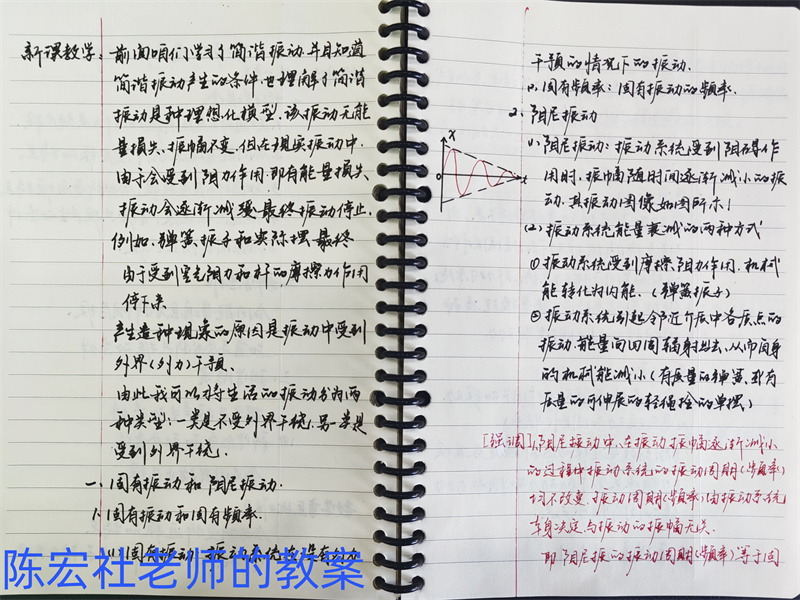 新课教学: 前面咱们学习了简谐振动,并且知道
简谐振动产生的条件,也理解了简谐
振动是种理想化模型,该振动无能
量损失、振幅不变,但在现实振动中,
由于会受到阻力作用,即有能量损失
振动会逐渐减 最终振动停止.
例如,弹簧振子和实际摆最终
由于受到空气阻力和杆的摩擦力作用
停下来
产生这种现象的原因是振动中受到
外界(外力)干预.
由此我们可以将生活的振动分为两
种类型:一类是不受外界干扰,另一类是
受到外界干扰.
一、固有振动和阻尼振动.
1.固有振动和固有频率.
(1)固有振动:振动系统在没有外力
干预的情况下的振动.
(2)固有频率:固有振动的频率.
2.阻尼振动
x
0
t
(1)阻尼振动:振动系统受到阻碍作
用时,振幅随时间逐渐减小的振
动,其振动图像如图所示!
(2)振动系统能量衰减的两种方式
①振动系统受到摩擦阻力作用,机械
能转化为内能.(弹簧振子)
②振动系统引起邻近介质中各质点的
振动,能量向四周辐射出去,从而自身
的机械能减小(有质量的弹簧,或有
质量的可伸展的轻绳拴的单摆)
[强调]1.阻尼振动中,在振动振幅逐渐减小
的过程中振动系统的振动周期(频率)
均不改变,振动周期(频率)由振动系统
本身决定,与振动的振幅无关.
即阻尼振的振动周期(频率)等于固
陈宏社老师的教案